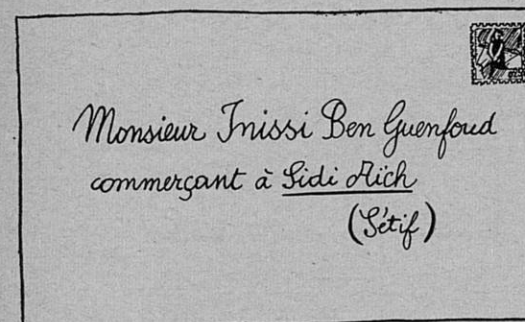 Monsieur Inissi Ben Guenfoud
commerçant à Sidi Aïch
(Sétif)